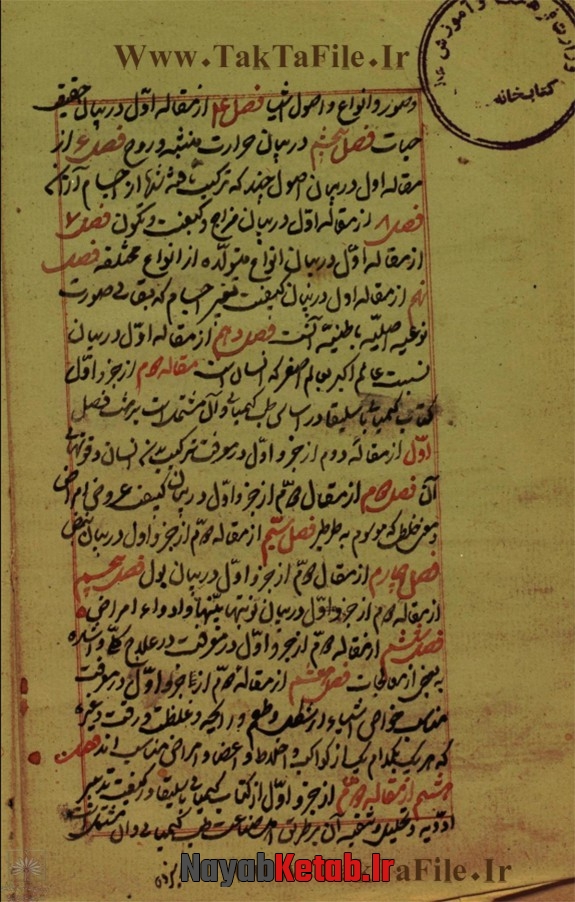 Www.TakTaFile.Ir
وزارت فرهنگ و آموزش
کتابخانه
وصور و انواع و اصول اشیا فصل از مقاله اوّل در بیان حقیقت
حیات فصل پنجم در بیان حرارت و روح فصل ۶ از
مقاله اول در بیان اصول چند که ترکیب از اجسام از آن
فصل ۸ از مقاله اوّل در بیان مزاج و کیفیت و تکون فصل ۷
از مقاله اوّل در بیان انواع متولّده از انواع مختلفه فصل
نهم از مقاله اول در بیان کیفیت تغیر اجسام که بقای صورت
نوعیه اصلیّه باطنیّه است فصل دهم از مقاله اوّل در بیان
نسبت عالم اکبر بعالم اصغر که انسان است مقاله دوم از جزو اوّل
کتاب کیمیای باسلیقا در اساس طب کیمیائی و آن مشتملست بر هشت فصل
اوّل از مقالهٔ دوم از جزو اوّل در معرفت ترکیب انسان و قوتهای
آن فصل دوم از مقاله دوّم از جزو اوّل در بیان کیفیت عروض امراض
و معنی خلط که موسوم به طرطیر فصل سیّم از مقاله دوّم از جزو اول در بیان نبض
فصل چهارم از مقاله دوّم از جزو اوّل در بیان بول فصل پنجم
از مقاله دوم از جزو اوّل در بیان نوبتها و ادواء امراض
فصل ششم از مقاله دوّم از جزو اوّل در معرفت در علاج کلی و اشاره
به بعضی از معالجات فصل هفتم از مقاله دوّم از جزو اوّل در معرفت
مناسب خواص اشیاء از شکل و طعم و رایحه و غلظت و رقت و غیره
که هر یک بکدام یک از کواکب و اخلاط و اعضا و امراض مناسب اند فصل
هشتم از مقاله دوّم از جزو اوّل از کتاب کیمیای باسلیقا در کیفیت تدبیر
ادویه و تحلیل و تنقیه آن بر طریق اهل صناعت طب کیمیائی و آن مشتملست
NayabKetab.Ir
TakTaFile.Ir